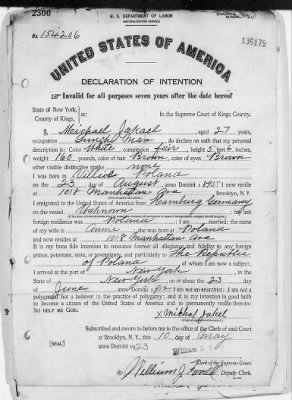 2300
U. S. DEPARTMENT OF LABOR
NATURALIZATION SERVICE
No. 154206
136179
UNITED STATES OF AMERICA
DECLARATION OF INTENTION
Invalid for all purposes seven years after the date hereof
State of New York,
County of Kings,
In the Supreme Court of Kings County.
I, Michael Jakael aged 27 years,
occupation Laundry Man, do declare on oath that my personal
description is: Color White, complexion fair, height 5 feet inches,
weight 160 pounds, color of hair Brown, color of eyes Brown
other visible distinctive marks none
I was born in Poland
on the 23 day of August, anno Domini 1895; I now reside
at 1018 Manhattan Ave Brooklyn, N.Y.
I emigrated to the United States of America from Hamburg Germany
on the vessel Unknown; my last
foreign residence was; I am married; the name
of my wife is Annie; she was born at Poland
and now resides at 1018 Manhattan Ave
It is my bona fide intention to renounce forever all allegiance and fidelity to any foreign
prince, potentate, state, or sovereignty, and particularly to The Republic
of Poland, of whom I am now a subject;
I arrived at the port of New York, in the
State of New York, on or about the 23 day
of June, anno Domini; I am not an anarchist; I am not a
polygamist nor a believer in the practice of polygamy; and it is my intention in good faith
to become a citizen of the United States of America and to permanently reside therein:
SO HELP ME GOD.
x Michal Jakel
Subscribed and sworn to before me in the office of the Clerk of said Court
at Brooklyn, N.Y., this 10 day of May
anno Domini 1923
[SEAL]
Clerk of the Supreme Court.
By William J. Deputy Clerk.